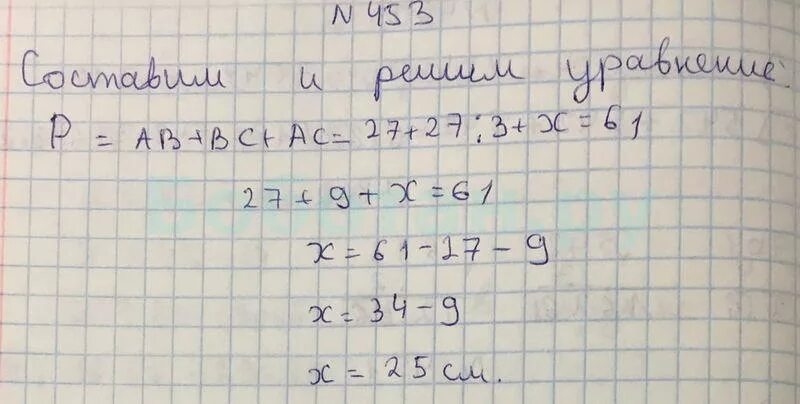 N 453
Составим и решим уравнение:
P = AB+BC+AC= 27+27:3+x=61
27+9+x=61
x=61-27-9
x=34-9
x=25 см.